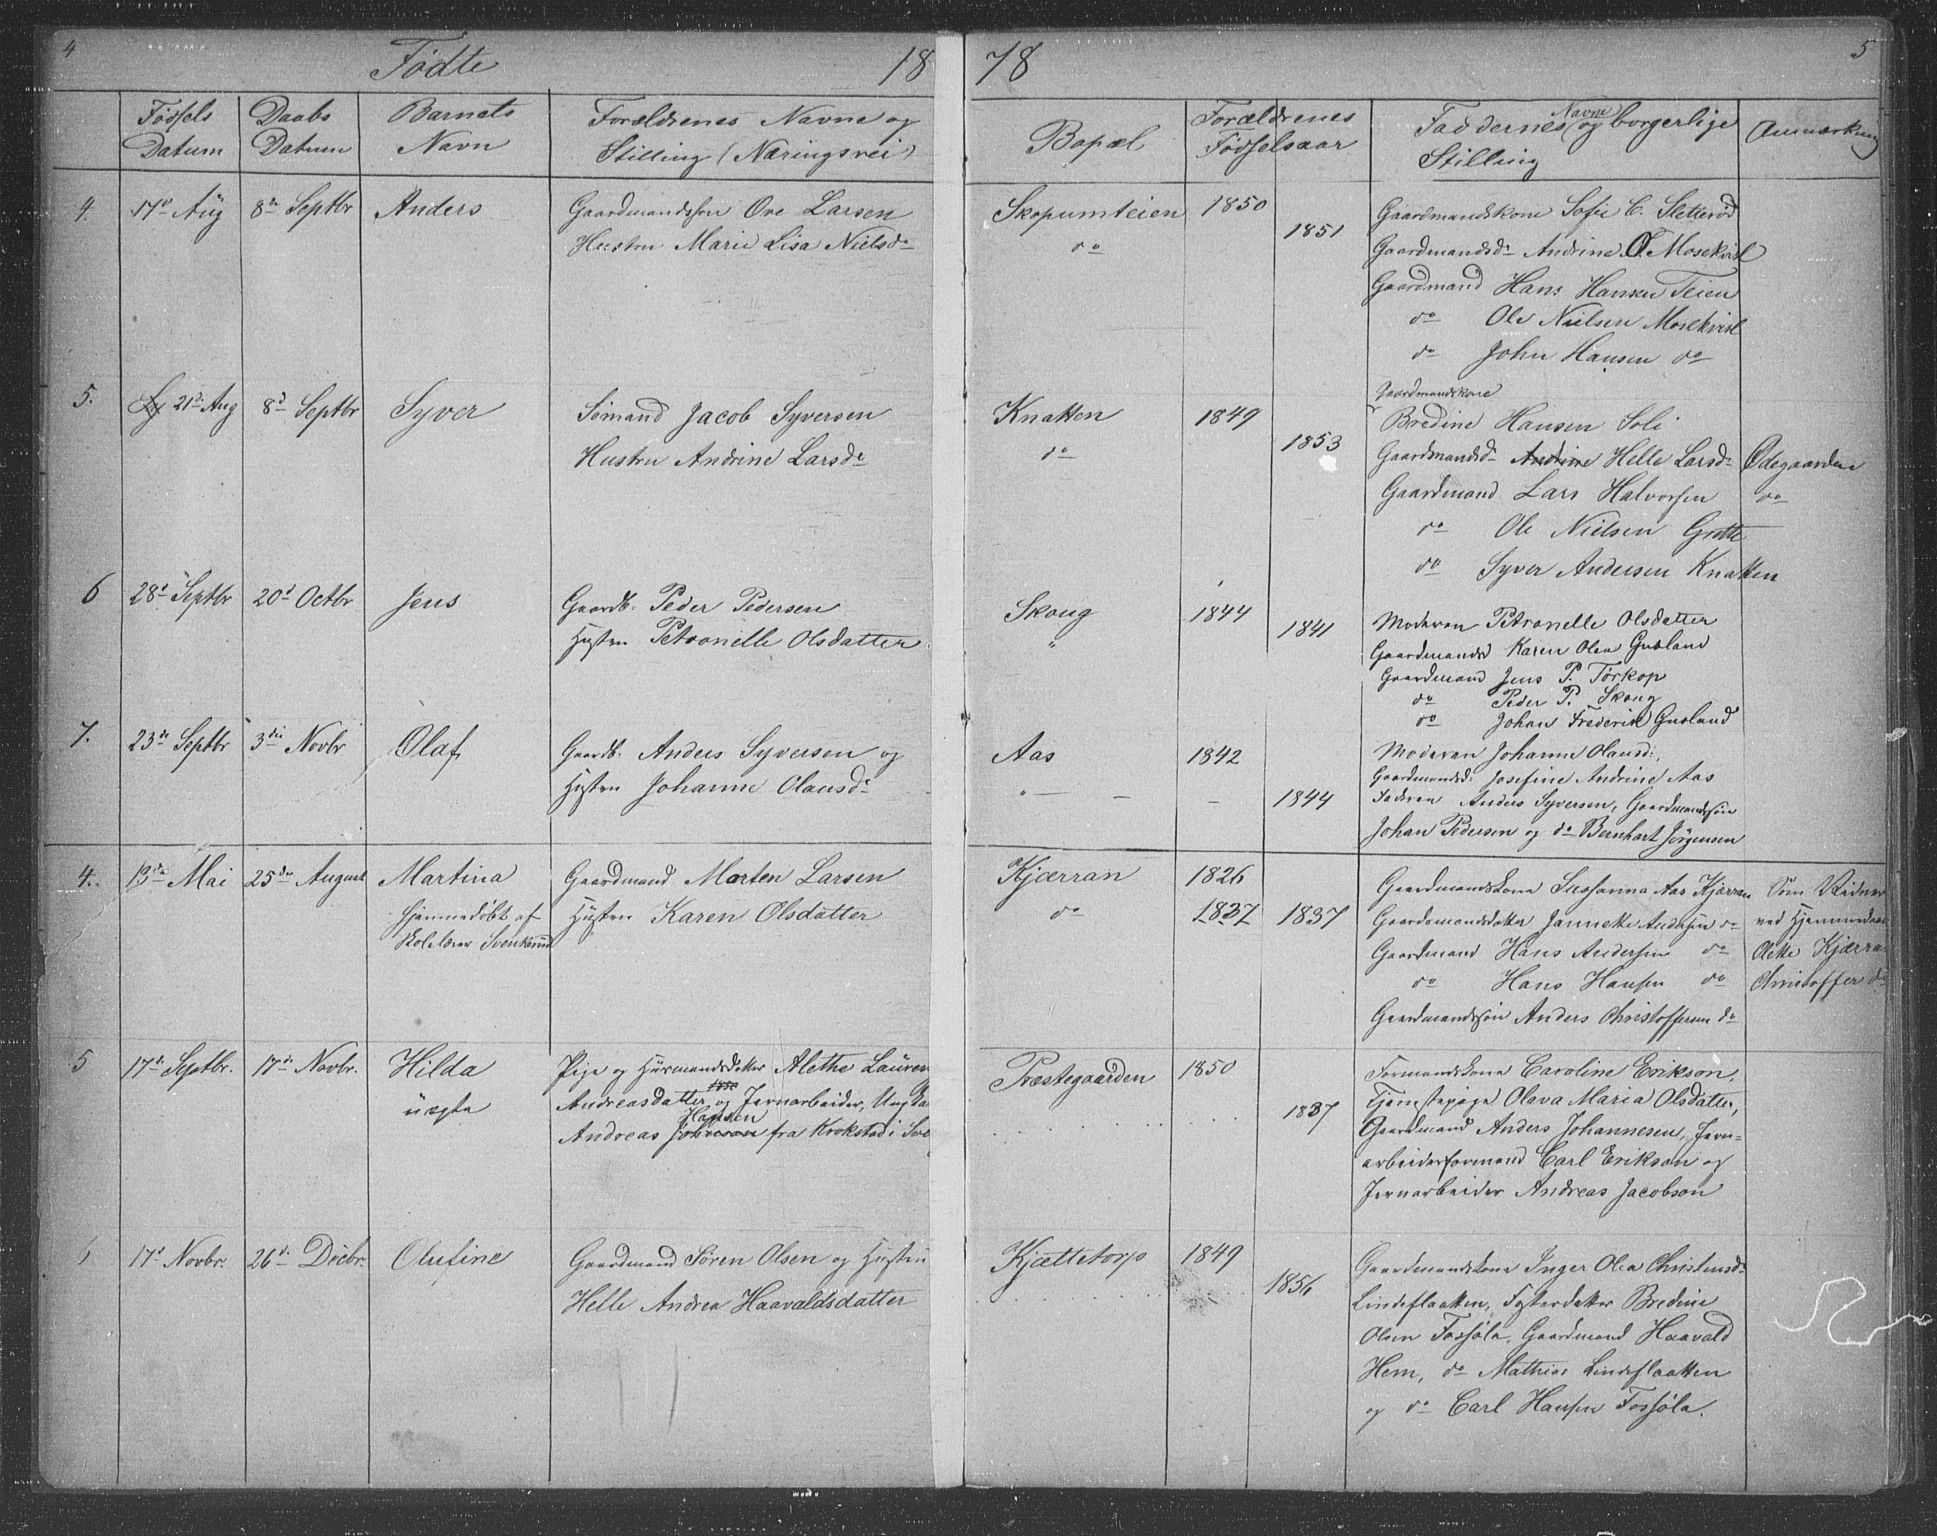 4
Fødte
18
78
5
Fødsels Datum
Daabs Datum
Barnets Navn
Forældrenes Navne og
Stilling (Næringsvei)
Bopæl
Forældrenes
Fødselsaar
Faddernes Navne og borgerlige
Stilling
Anmærkning
4. 17de Aug 8de Septbr Anders Gaardmandssøn Ove Larsen Skopumteien 1850 Gaardmandskone Sofie C. Sletterød
Hustru Marie Lisa Nielsdr do 1851 Gaardmandsdr Andrine O. Mosekvist
Gaardmand Hans Hansen Teien
do Ole Nielsen Mosekvist
do John Hansen do
5. 21de Aug 8de Septbr Syver Sømand Jacob Syversen Knatten 1849 Gaardmandskone
Bredine Hansen Soli
Hustru Andrine Larsdr do 1853 Gaardmandsdr Andrine Helle Larsdr Ødegaarden
Gaardmand Lars Halvorsen do
do Ole Nielsen Grotte
do Syver Andersen Knatten
6 28de Septbr 20de Octbr Jens Gaardb. Peder Pedersen Skoug 1844 Moderen Petronelle Olsdatter
Hustru Petronelle Olsdatter " 1841 Gaardmandsd Karen Olea Gusland
Gaardmand Jens P. Tørkop
do Peder P. Skoug
do Johan Frederik Gusland
7. 23de Septbr 3die Novbr Olaf Gaardb. Anders Syversen og Aas 1842 Moderen Johanne Olausd:,
Hustru Johanne Olausdr " 1844 Gaardmandsd: Josefine Andrine Aas
Faderen Anders Syversen, Gaardmandssøn
Johan Pedersen og do Bernhart Jørgensen
4. 13de Mai 25de August Martina Gaardmand Morten Larsen Kjærran 1826 Gaardmandskone Sussanna Aas Kjærran Som Vidner
Hjemmedøbt af Hustru Karen Olsdatter do 1837 1837 Gaardmandsdatter Janneke Andersen do ved Hjemmedaab
Skolelærer Svenkerud Gaardmand Hans Andersen do Kjærra
do Hans Hansen do Christoffer do
Gaardmandssøn Anders Christoffersen do
5 17de Septbr. 17de Novbr. Hilda Pige og Husmandsdatter Alethe Lauren Præstegaarden 1850 Formandskone Caroline Erikson,
uægte Andreasdatter 1850 og Jernarbeider, Ungkar 1837 Tjenestepige Olava Maria Olsdatter,
Andreas Johnson Hansen fra Krokstad i Sve Gaardmand Anders Johannesen, Jern-
arbeiderformand Carl Erikson og
Jernarbeider Andreas Jacobson
1 17de Novbr. 26de Decbr. Olufine Gaardmand Søren Olsen og Hustru Kjættetorp 1849 Gaardmandskone Inger Olea Christensdr
Helle Andrea Haavaldsdatter 1856 Lindeflaatten, Fosterdatter Bredine
Olsen Fossøla, Gaardmand Haavald
Hem, do Mathias Lindeflaatten
og do Carl Hansen Fossøla.